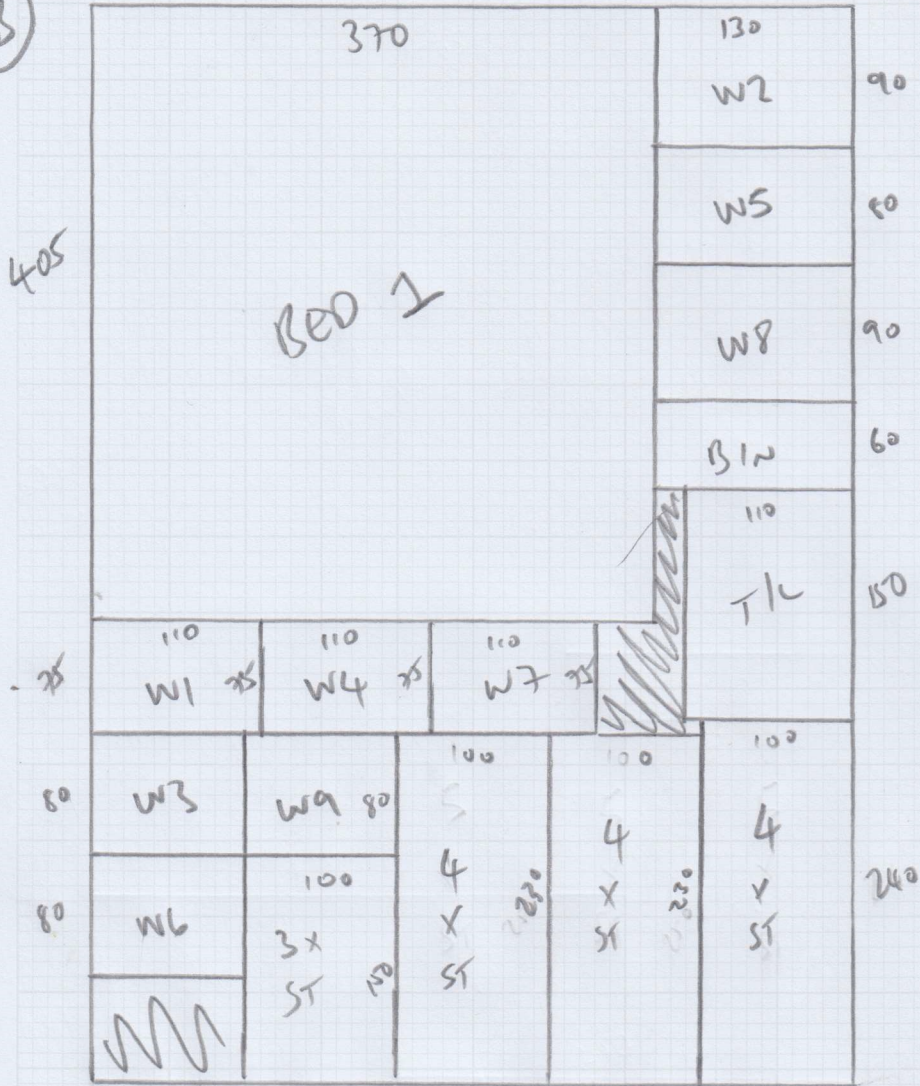 3
370
130
W2
90
W5
80
405
BED 1
W8
90
BIN
60
110
T/L
150
110
110
110
75
W1
75
W4
75
W7
75
100
100
100
80
W3
W9
80
4
x
ST
230
4
x
ST
230
4
x
ST
240
80
W6
100
3x
ST
150